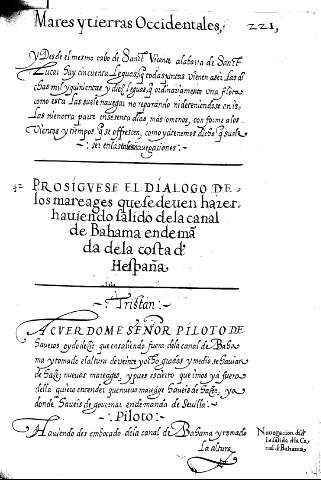 Mares y tierras Occidentales, 221,
Y Desde el mesmo cabo de Sanct Vicente ala baria de Sanct
Lucar hay cincuenta Leguas, q̃ todas juntas vienen a ser las di
chas mil y quinientas y diez leguas, q̃ ordinariamente una flota
como esta las suele navegar no reparando ni deteniendose en is
las ni en otra parte en setenta dias, mas o menos, conforme a los
Vientos y tiempos q̃ se offrescen, como ya tenemos dicho q̃ suele
ser en las tales navegasiones
PROSIGVESE EL DIALOGO DE
los mareages que se deuen hazer
hauiendo salido dela canal
de Bahama en demã
da dela costa d'
Hespaña
Tristan
ACVERDOME SEÑOR PILOTO DE
haueros oydo dezir que en saliendo fuera dela canal de Baha
ma y tomado el altura de veinte y ocho grados y medio se hauian
de hazer nuevos mareages, y pues es cierto que imos ya fuera
della quiero entender que nuevo mareage haueis de hazer, ya
donde haueis de governar en demanda de Sevilla
Piloto
Haviendo des embocado dela canal de Bahama y tomado
La altura
Navegacion dsd'
la salida dla Ca
nal d' Bahama